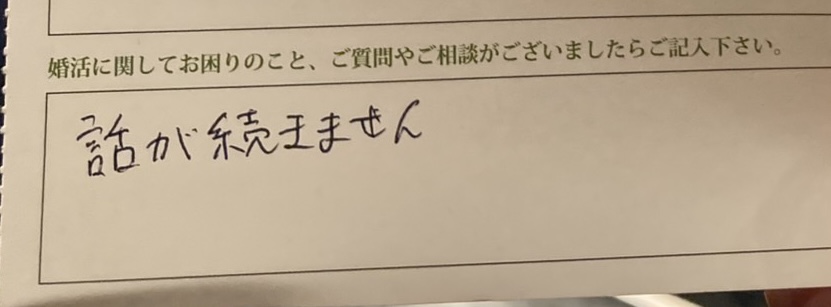 婚活に関してお困りのこと、ご質問やご相談がございましたらご記入下さい。
話が続きません